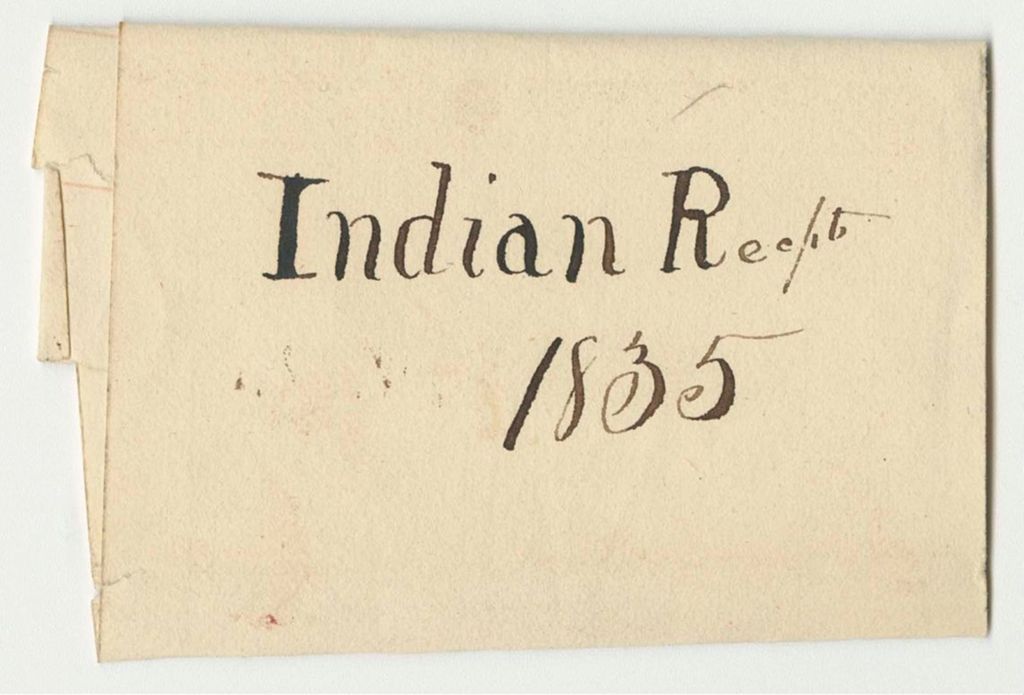 Indian Recpts
1835